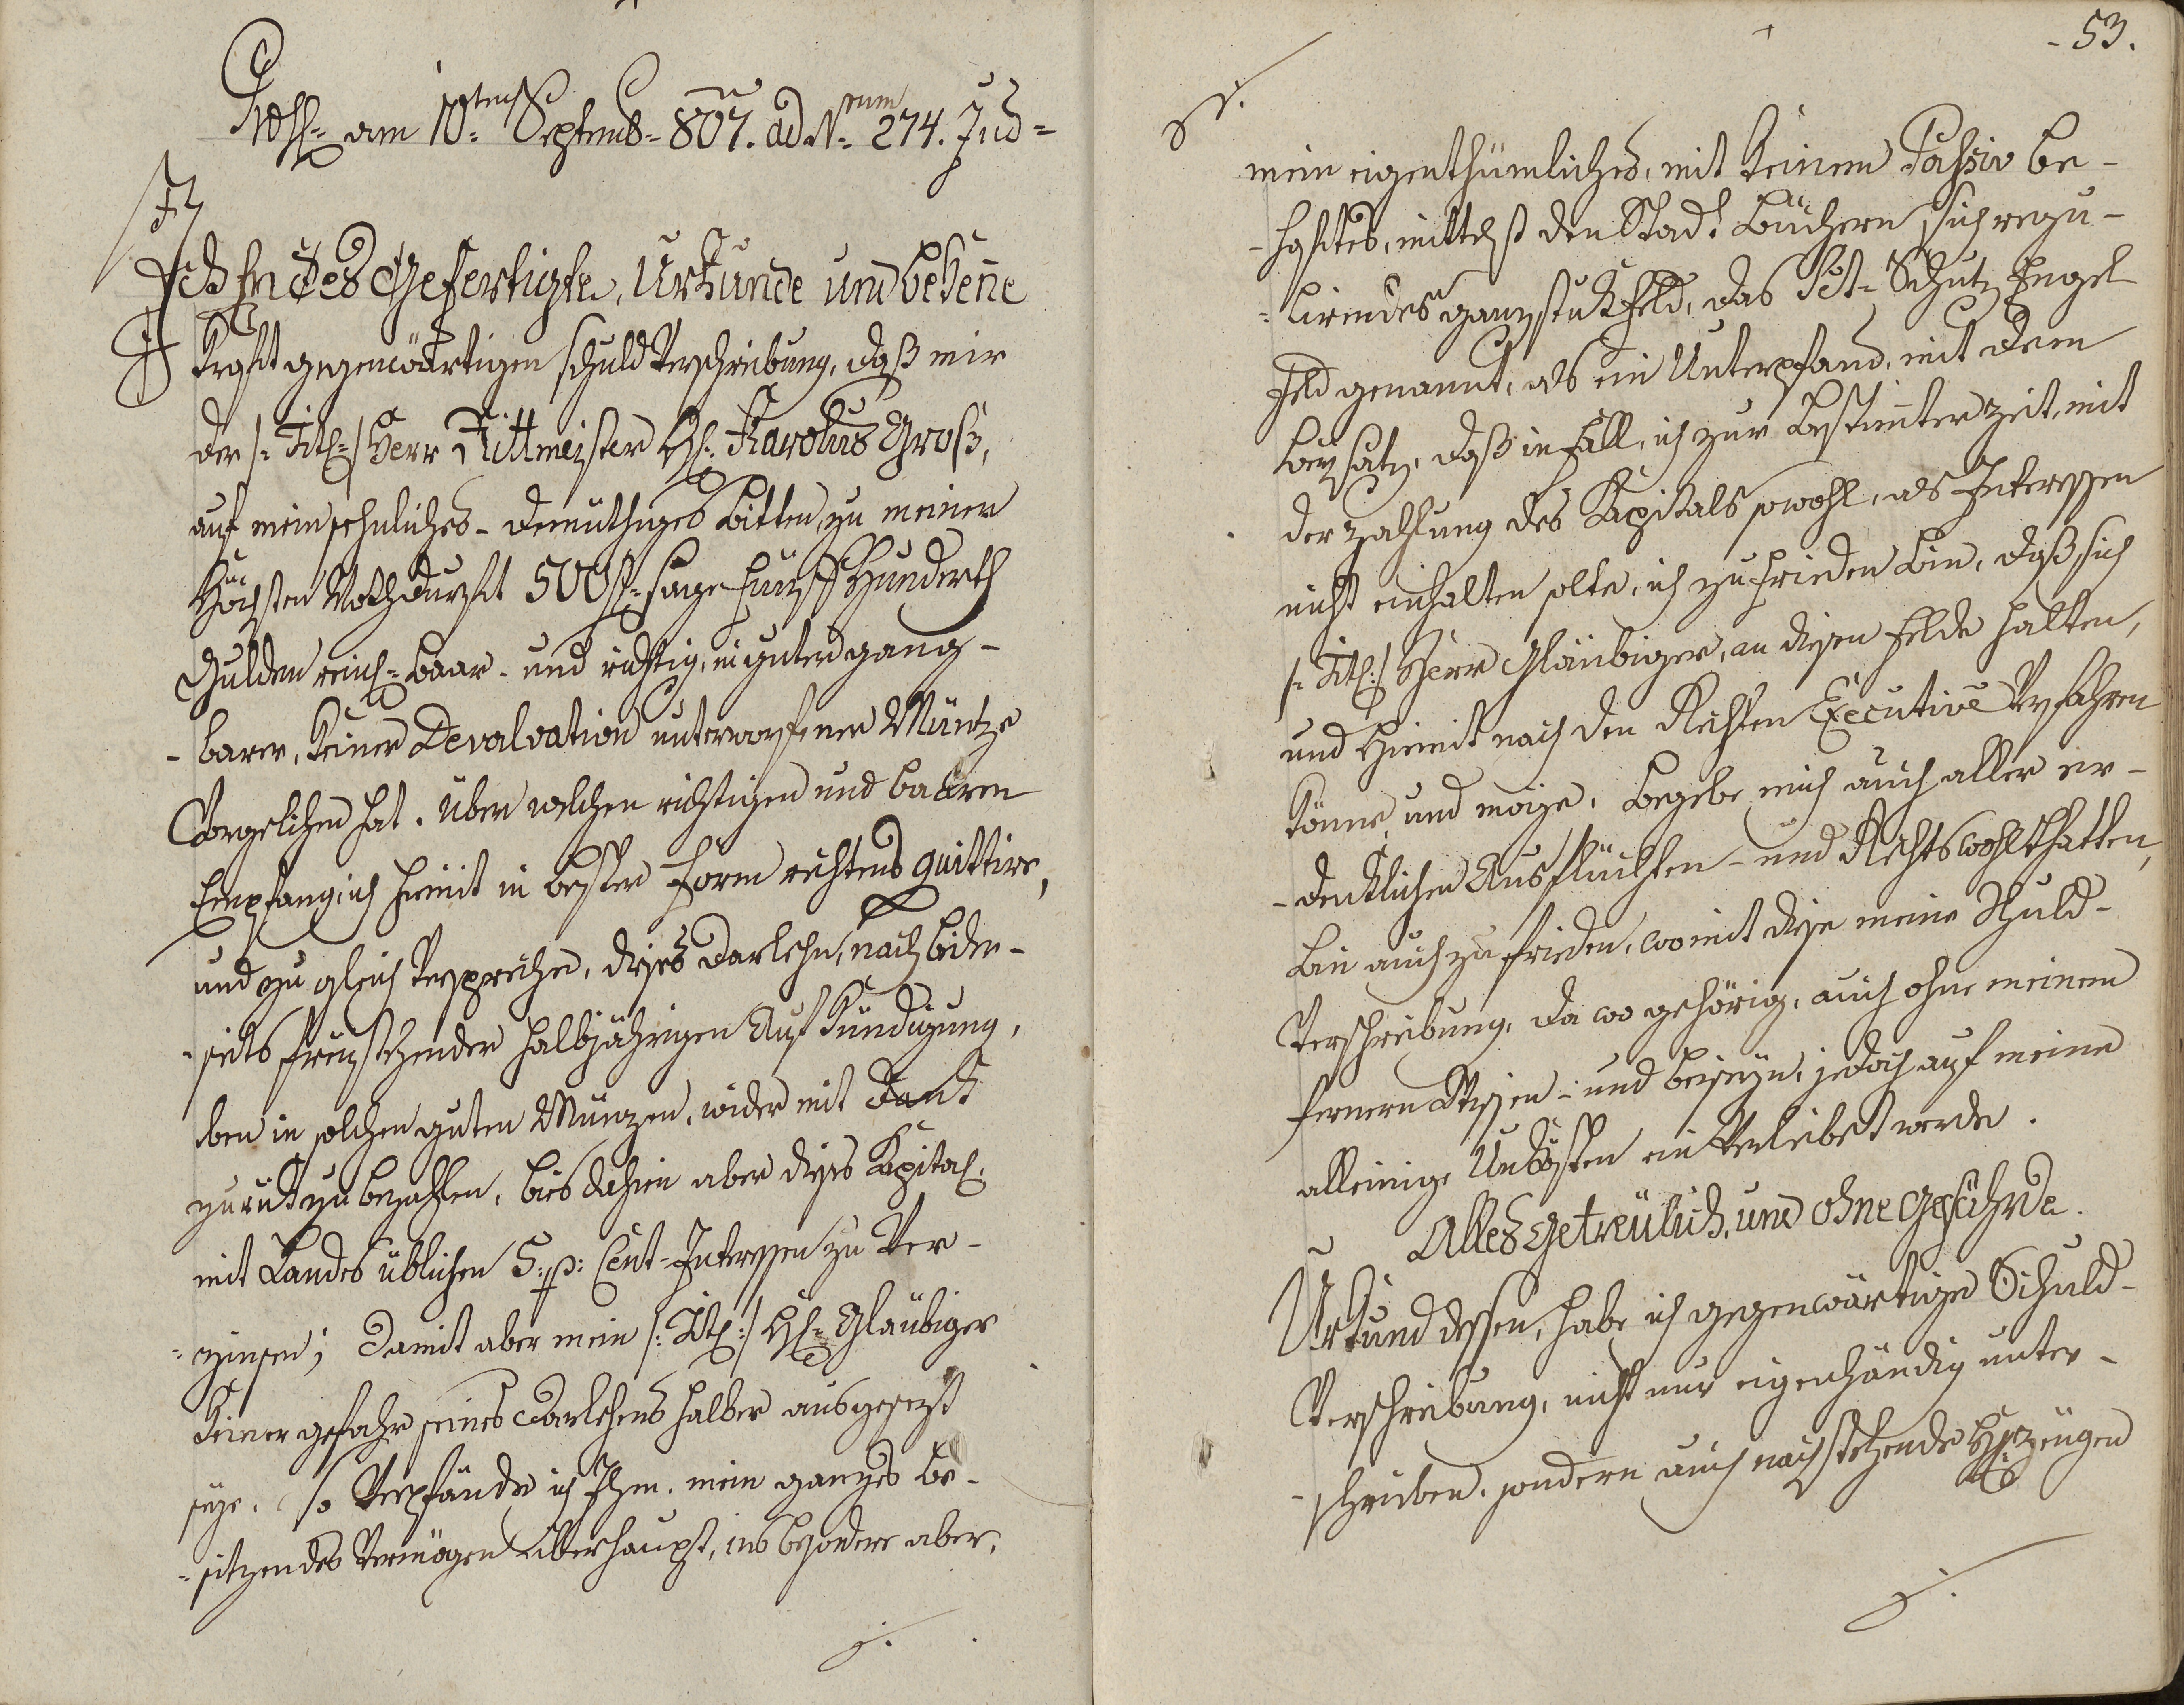 am 10.ten Septemb= 807. ad N.rum 274. Jud=
Ich Endes Gefertigte, Urkunde und bekene
Kraft gegenwärtigen schuld Verschreibung, daß mir
der /: Titl: / Herr Rittmeister H: Karolus Groß,
auf mein sehnliches - demüthiges Bitten, zu meiner
höchsten Nothdurfft 500 f= sage Fünff Hunderth
Gulden reinl= baar - und richtig, in guter gang-
- barer, keiner Devalvation unterworffener Müntze
Vorgelichen hat. Über welchen richtigen und baaren
Empfang ich hiemit in bester Form rechtens quittire,
und zu gleich Verspreche, dises Darlehn, nach beder-
- seits freystehender halbjährigen Aufkündigung,
eben in solchen guten Münzen, wider mit Dank
zuruk zu bezahlen, bis dahin aber dises Kapital:
mit Landes üblichen 5. p: Cent-Interessen zu Ver-
- zinsen; Damit aber mein /: Titl: / H: Gläubiger
Keiner gefahr seines Darlehens halber ausgesezt
seye. so Verpfände ich Ihm. mein ganzes be-
- sitzendes Vermögen überhaupt, ins besondere aber,
./.
53.
./.
mein eigenthümliches, mit keinem Passiv be-
- haftes, mittelst den Stad: Büchern sich regu-
- lirendes ganzstuk Feld, das Sct= Schutz Engel
Feld genannt, als ein Unterpfand, mit dem
beysatz, daß in Fall, ich zur bestimter zeit, mit
der zahlung des Kapitals sowohl, als Interessen
nicht einhalten solte, ich zufrieden bin, daß sich
/: Titl: / Herr Gläubiger, an disen Felde halten,
und hiemit nach den Rechten Executivè Verfahren
könne und möge. begebe mich auch aller er-
- denklichen Ausflüchten - und Rechtswohlthatten,
bin auch zufrieden, womit dise meine Schuld-
Verschreibung, da wo gehörig, auch ohne meinem
fernern Wissen - und beiseyn, jedoch auf meine
alleinige Unkösten ein Verleibet werde.
Alles getreülich, und ohne Gefährde.
Urkund dessen, habe ich gegenwärtige Schuld-
Verschreibung, nicht nur eigenhändig unter-
- schrieben, sondern auch nachstehende H: zeugen
./.